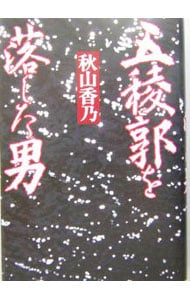 五稜郭を
落した男
秋山香乃